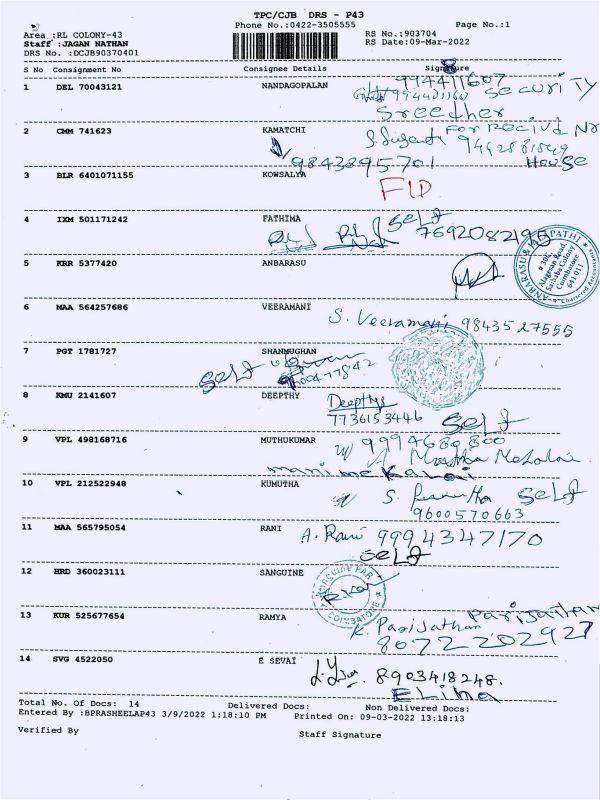 TPC/CJB DRS - P43
Phone No.:0422-3505555 Page No.:1
Area :RL COLONY-43 RS No.:903704
Staff :JAGAN NATHAN RS Date:09-Mar-2022
DRS No. :DCJB90370401
S No Consignment No Consignee Details Signature
1 DEL 70043121 NANDAGOPALAN 994411607
SECURITY
Sreedher
2 CMM 741623 KAMATCHI
9843895701 House
3 BLR 6401071155 KOWSALYA
4 IXM 501171242 FATHIMA SELF
5 KRR 5377420 ANBARASU
ANBARASU & PASUPATHI
Alagesan Road, Saibaba Colony Coimbatore 641 011
Chartered Accountants
6 MAA 564257686 VEERAMANI S. Veeramani 9843527555
7 PGT 1781727 SHANMUGHAN
SELF
8 KMU 2141607 DEEPTHY Deepthy
7736153446 SELF
9 VPL 498168716 MUTHUKUMAR
manimekalai
10 VPL 212522948 KUMUTHA SELF
9600570663
11 MAA 565795054 RANI A. Rani 9994347170
SELF
12 HRD 360023111 SANGUINE
COIMBATORE
13 KUR 525677654 RAMYA Parijatham
K. Parijatham
8072202927
14 SVG 4522050 E SEVAI 8903418248.
ELiNa
Total No. Of Docs: 14 Delivered Docs: Non Delivered Docs:
Entered By :BPRASHEELAP43 3/9/2022 1:18:10 PM Printed On: 09-03-2022 13:18:13
Verified By Staff Signature